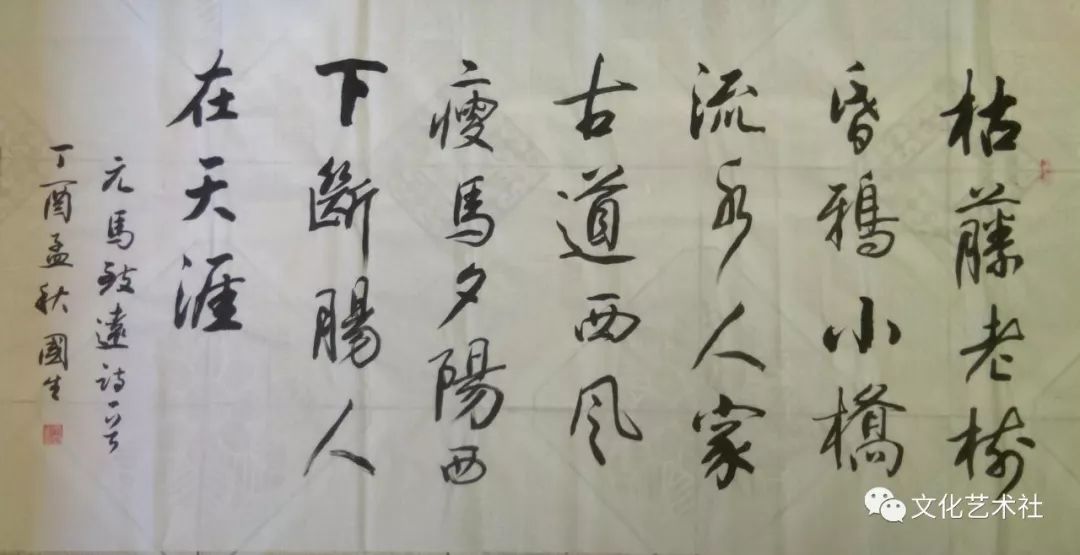 枯藤老樹
昏鴉小橋
流水人家
古道西風
瘦馬夕陽西
下斷腸人
在天涯
元馬致遠詩一首
丁酉孟秋國生
文化艺术社